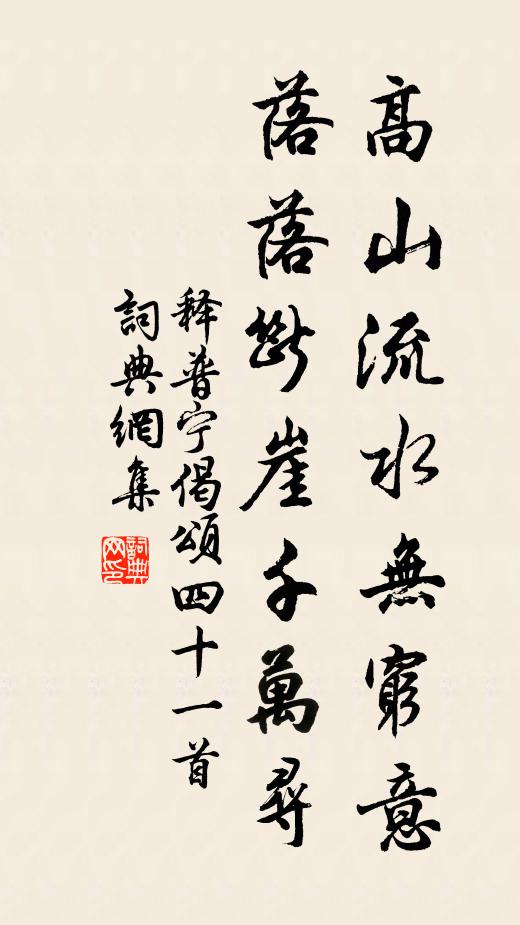 高山流水無窮意
落落斷崖千萬尋
释普宁偈頌四十一首
詞典網集
詞典网印